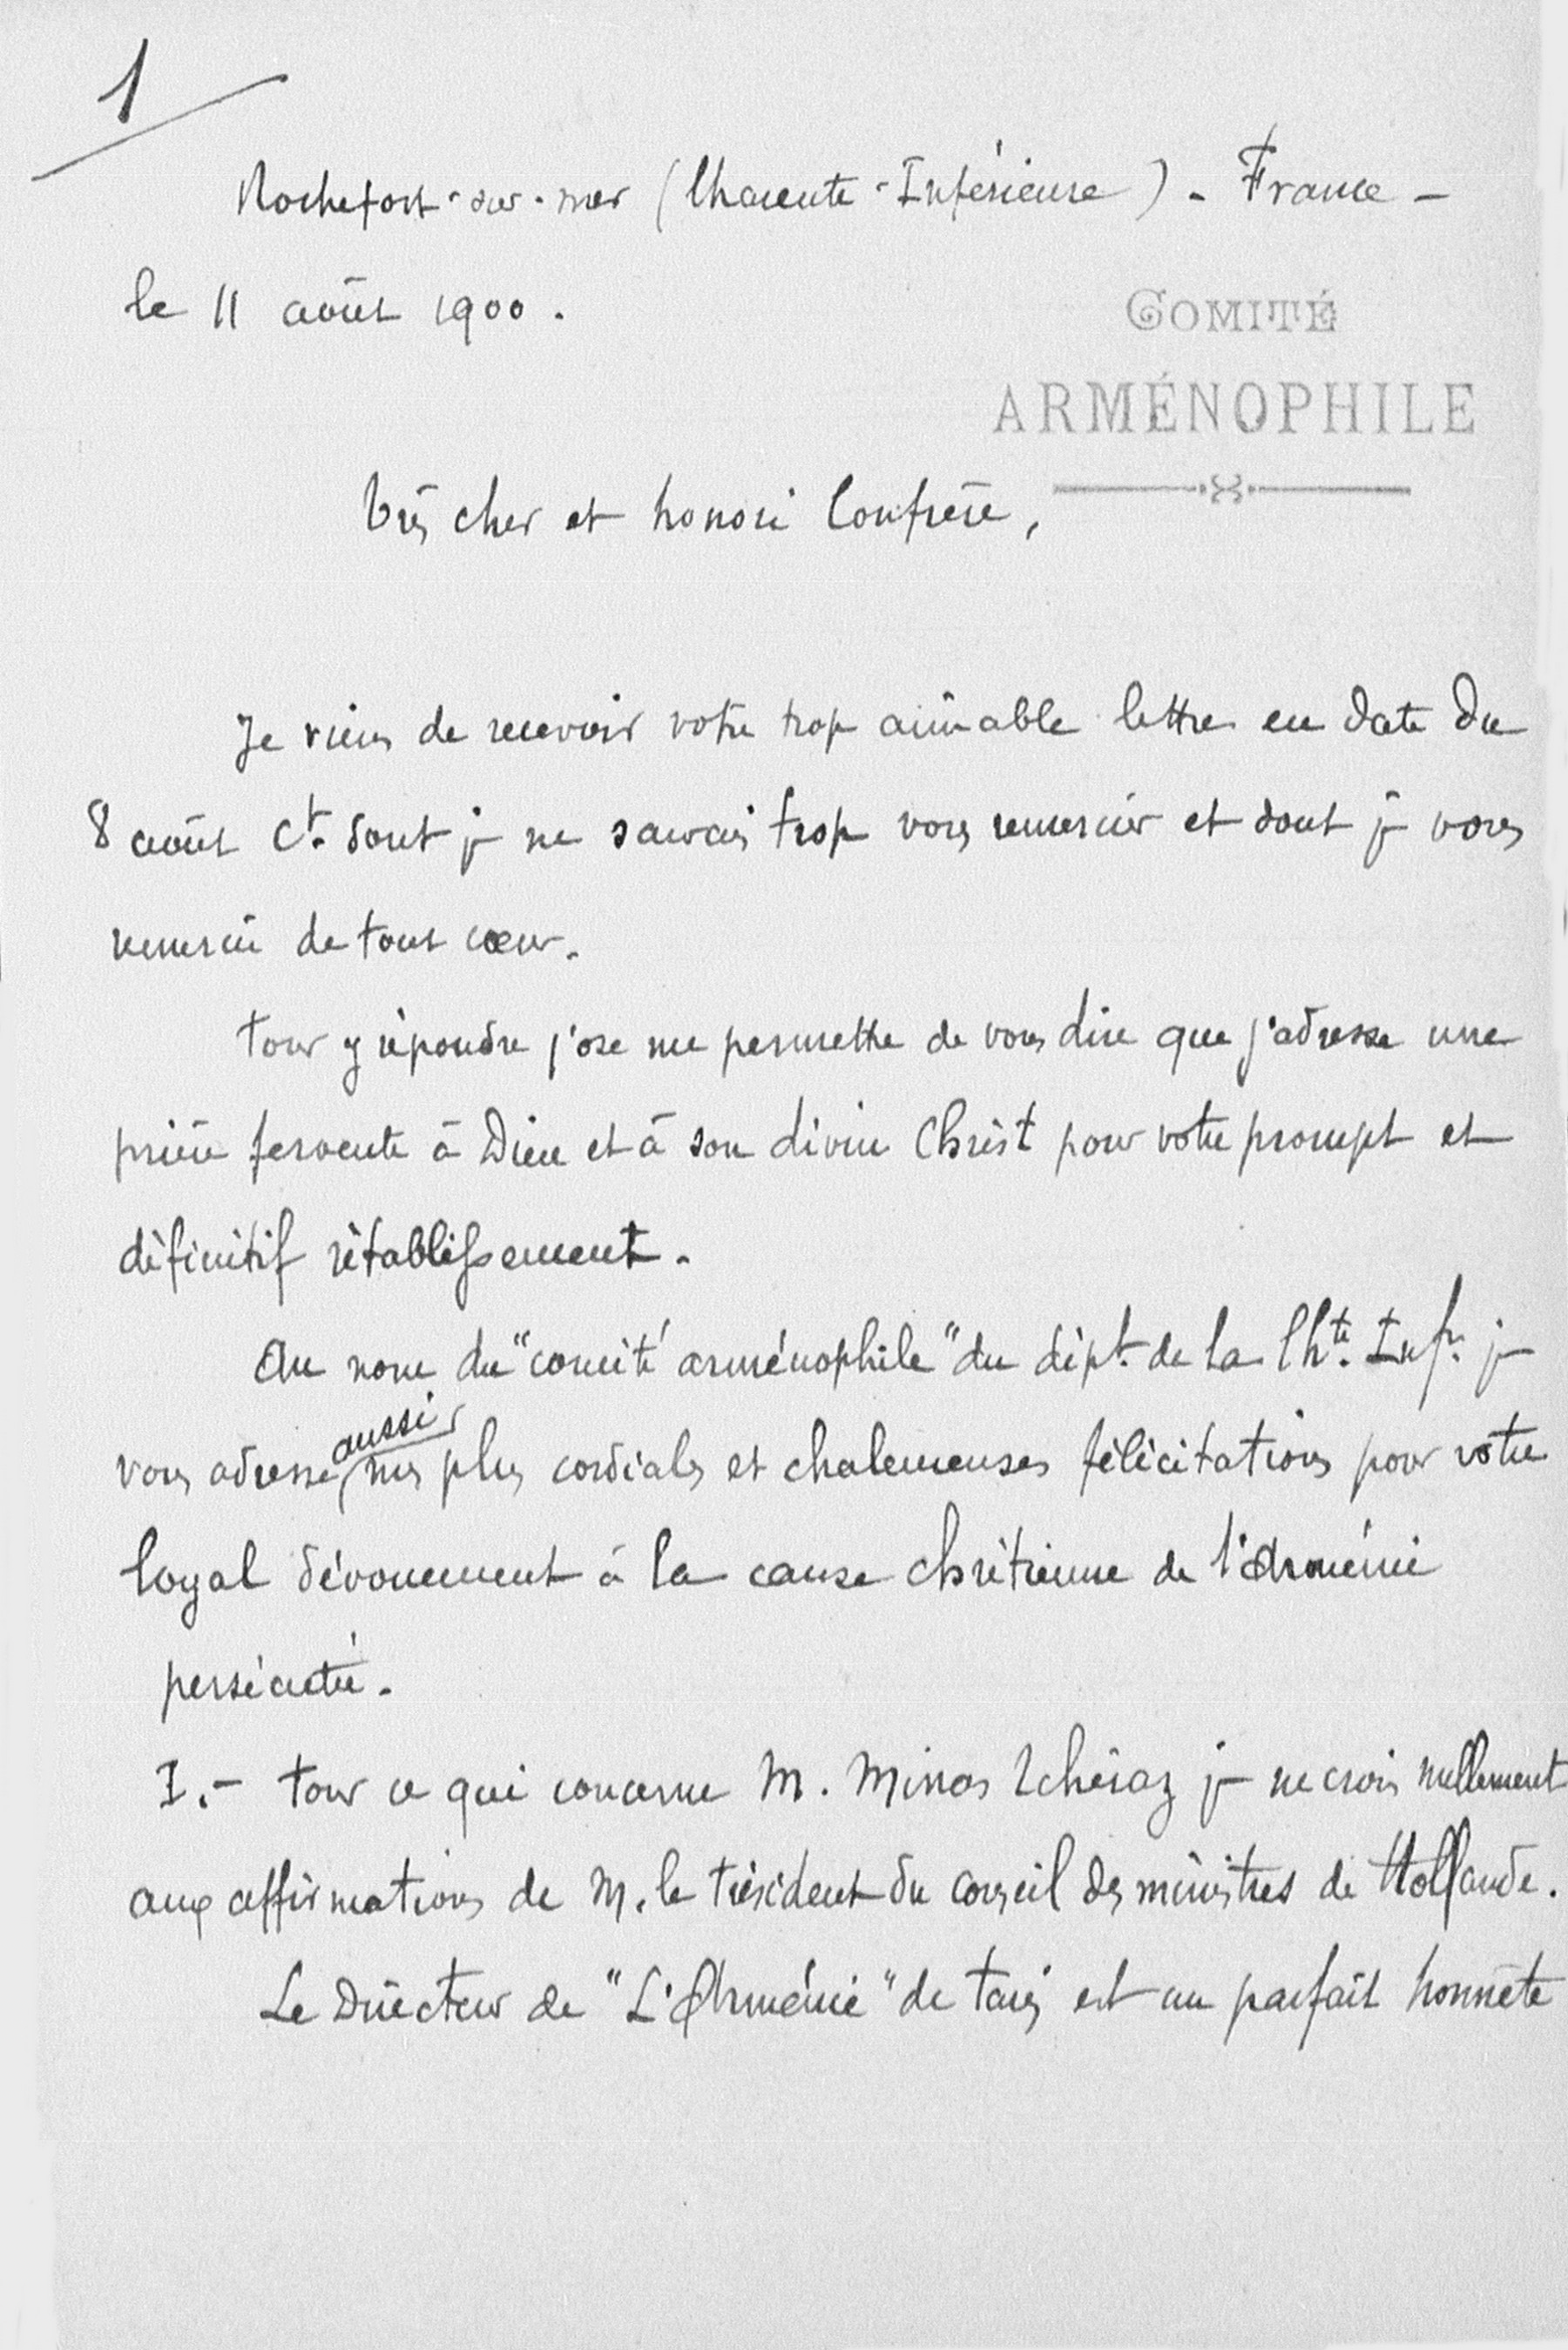 1
Rochefort-sur-mer (Charente-Inférieure) - France -
le 11 août 1900.
COMITÉ
ARMÉNOPHILE
Très cher et honoré Confrère,
Je viens de recevoir votre trop aimable lettre en date du
8 août Ct. dont je ne saurais trop vous remercier et dont je vous
remercie de tout cœur.
Pour y répondre j'ose me permettre de vous dire que j'adresse une
prière fervente à Dieu et à son divin Christ pour votre prompt et
définitif rétablissement.
Au nom du "comité arménophile" du dépt. de la Chte. Infre. je
vous adresse aussi mes plus cordiales et chaleureuses félicitations pour votre
loyal dévouement à la cause chrétienne de l'Arménie
persécutée.
I.- Pour ce qui concerne M. Minas Tchéraz je ne crois nullement
aux affirmations de M. le Président du conseil des ministres de Hollande.
Le Directeur de "L'Arménie" de Paris est un parfait honnête